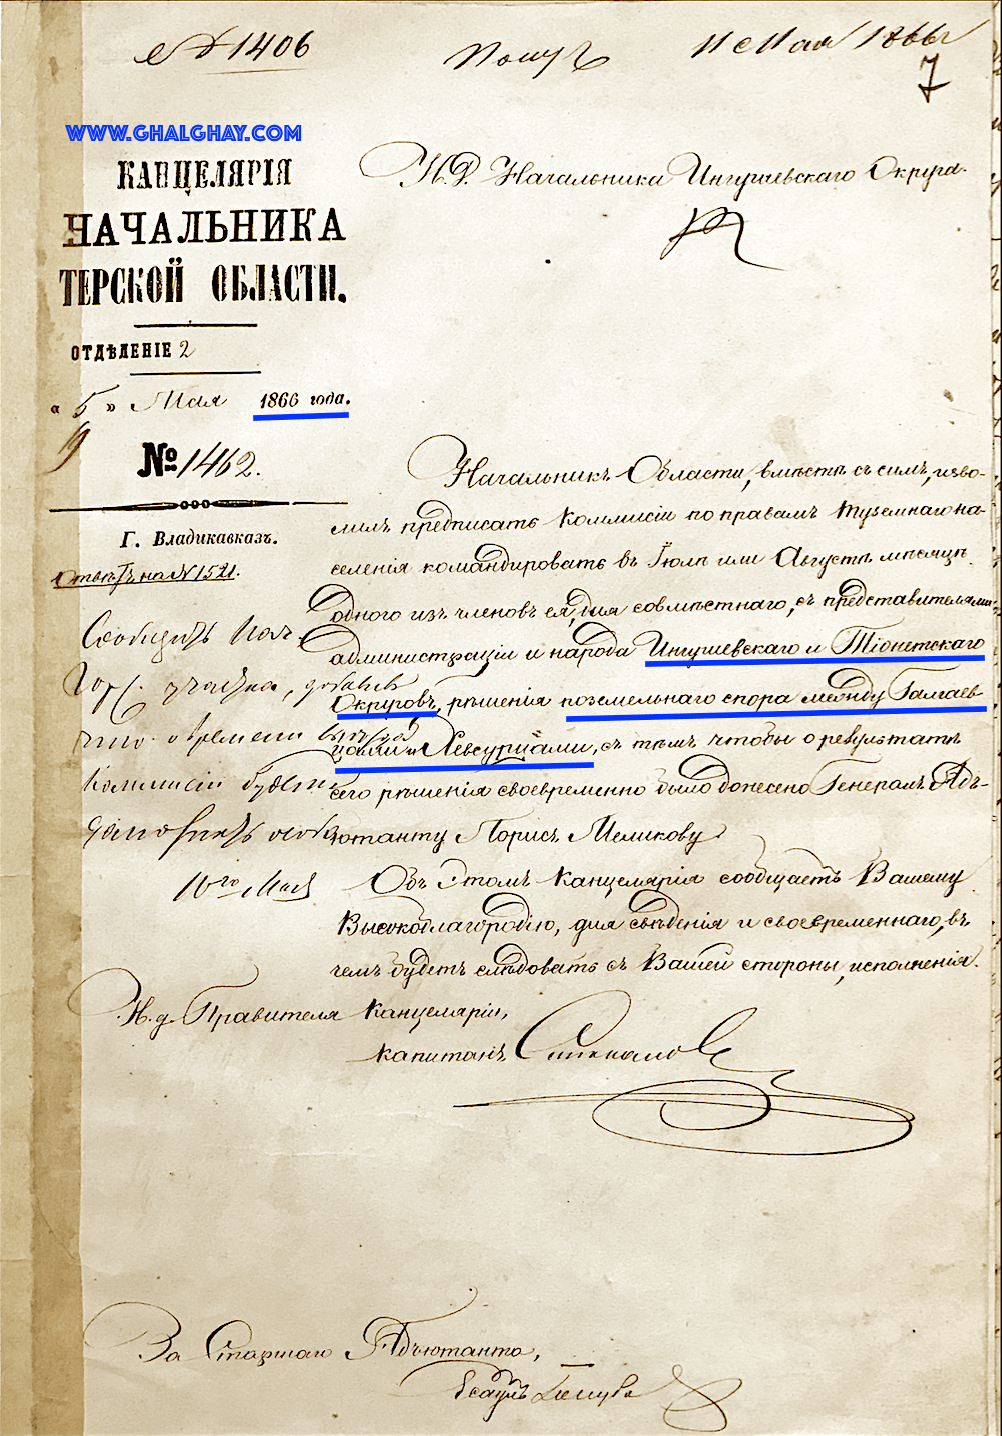 № 1406
Получ
11 Мая 1866 г
7
WWW.GHALGHAY.COM
КАНЦЕЛЯРІЯ
НАЧАЛЬНИКА
ТЕРСКОЙ ОБЛАСТИ.
ОТДѢЛЕНІЕ 2
« 5 » Мая 1866 года.
№ 1462.
Г. Владикавказъ.
Отвѣтъ на № 1521.
И. Д. Начальника Ингушевскаго Округа.
Начальникъ Области, вмѣстѣ съ симъ, изво-
лилъ предписать Коммисіи по правамъ туземнаго на-
селенія командировать въ Іюлѣ или Августѣ мѣсяцѣ
одного изъ членовъ ея, для совмѣстнаго, съ представителями
администраціи и народа Ингушевскаго и Тіонетскаго
Округовъ, рѣшенія поземельнаго спора между Галгаев-
цами и Хевсурцами, съ тѣмъ чтобы о результатѣ
сего рѣшенія своевременно было донесено Генералъ Адъ-
ютанту Лорисъ Меликову.
Объ этомъ Канцелярія сообщаетъ Вашему
Высокоблагородію, для свѣденія и своевременнаго, въ
чемъ будетъ слѣдовать съ Вашей стороны, исполненія.
Сообщить Нач.
Гор. участка, добавив
что о времени
Коммисіи будетъ
10го Мая
И. д. Правителя Канцеляріи,
капитанъ
За Старшаго Адъютанта,
Есаулъ